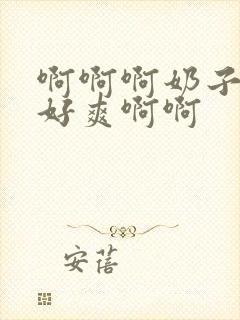 啊啊啊奶子
好爽啊啊
安蓓